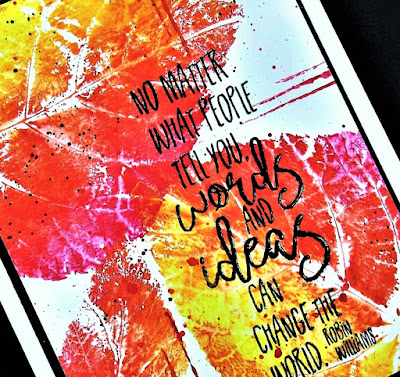 NO MATTER
WHAT PEOPLE
TELL YOU,
words
AND
ideas
CAN
CHANGE THE
WORLD. ROBIN
WILLIAMS